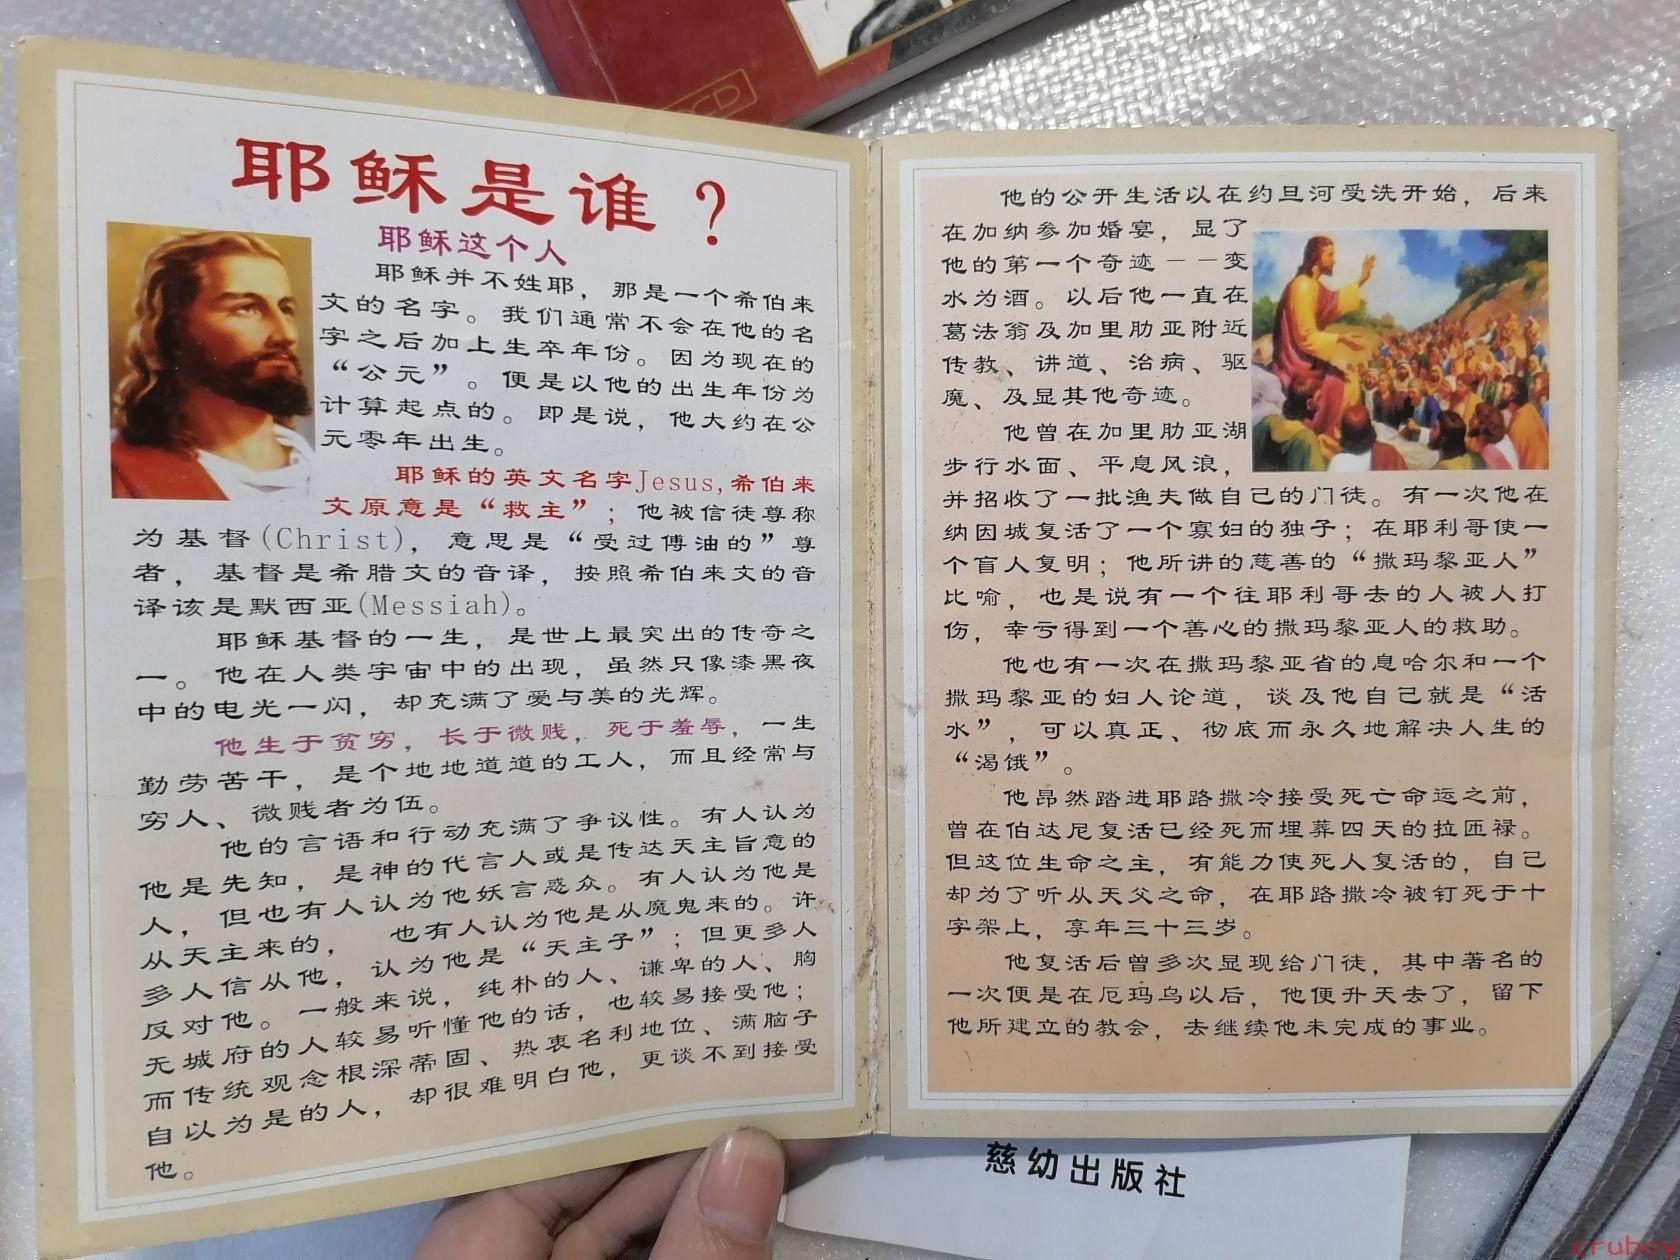 耶稣是谁？
耶稣这个人
耶稣并不姓耶，那是一个希伯来
文的名字。我们通常不会在他的名
字之后加上生卒年份。因为现在的
“公元”。便是以他的出生年份为
计算起点的。即是说，他大约在公
元零年出生。
耶稣的英文名字Jesus,希伯来
文原意是“救主”；他被信徒尊称
为基督(Christ)，意思是“受过傅油的”尊
者，基督是希腊文的音译，按照希伯来文的音
译该是默西亚(Messiah)。
耶稣基督的一生，是世上最突出的传奇之
一。他在人类宇宙中的出现，虽然只像漆黑夜
中的电光一闪，却充满了爱与美的光辉。
他生于贫穷，长于微贱，死于羞辱，一生
勤劳苦干，是个地地道道的工人，而且经常与
穷人、微贱者为伍。
他的言语和行动充满了争议性。有人认为
他是先知，是神的代言人或是传达天主旨意的
人，但也有人认为他妖言惑众。有人认为他是
从天主来的，也有人认为他是从魔鬼来的。许
多人信从他，认为他是“天主子”；但更多人
反对他。一般来说，纯朴的人、谦卑的人、胸
无城府的人较易听懂他的话，也较易接受他；
而传统观念根深蒂固、热衷名利地位、满脑子
自以为是的人，却很难明白他，更谈不到接受
他。
他的公开生活以在约旦河受洗开始，后来
在加纳参加婚宴，显了
他的第一个奇迹－－变
水为酒。以后他一直在
葛法翁及加里肋亚附近
传教、讲道、治病、驱
魔、及显其他奇迹。
他曾在加里肋亚湖
步行水面、平息风浪，
并招收了一批渔夫做自己的门徒。有一次他在
纳因城复活了一个寡妇的独子；在耶利哥使一
个盲人复明；他所讲的慈善的“撒玛黎亚人”
比喻，也是说有一个往耶利哥去的人被人打
伤，幸亏得到一个善心的撒玛黎亚人的救助。
他也有一次在撒玛黎亚省的息哈尔和一个
撒玛黎亚的妇人论道，谈及他自己就是“活
水”，可以真正、彻底而永久地解决人生的
“渴饿”。
他昂然踏进耶路撒冷接受死亡命运之前，
曾在伯达尼复活已经死而埋葬四天的拉匝禄。
但这位生命之主，有能力使死人复活的，自己
却为了听从天父之命，在耶路撒冷被钉死于十
字架上，享年三十三岁。
他复活后曾多次显现给门徒，其中著名的
一次便是在厄玛乌以后，他便升天去了，留下
他所建立的教会，去继续他未完成的事业。
慈幼出版社
cruboy